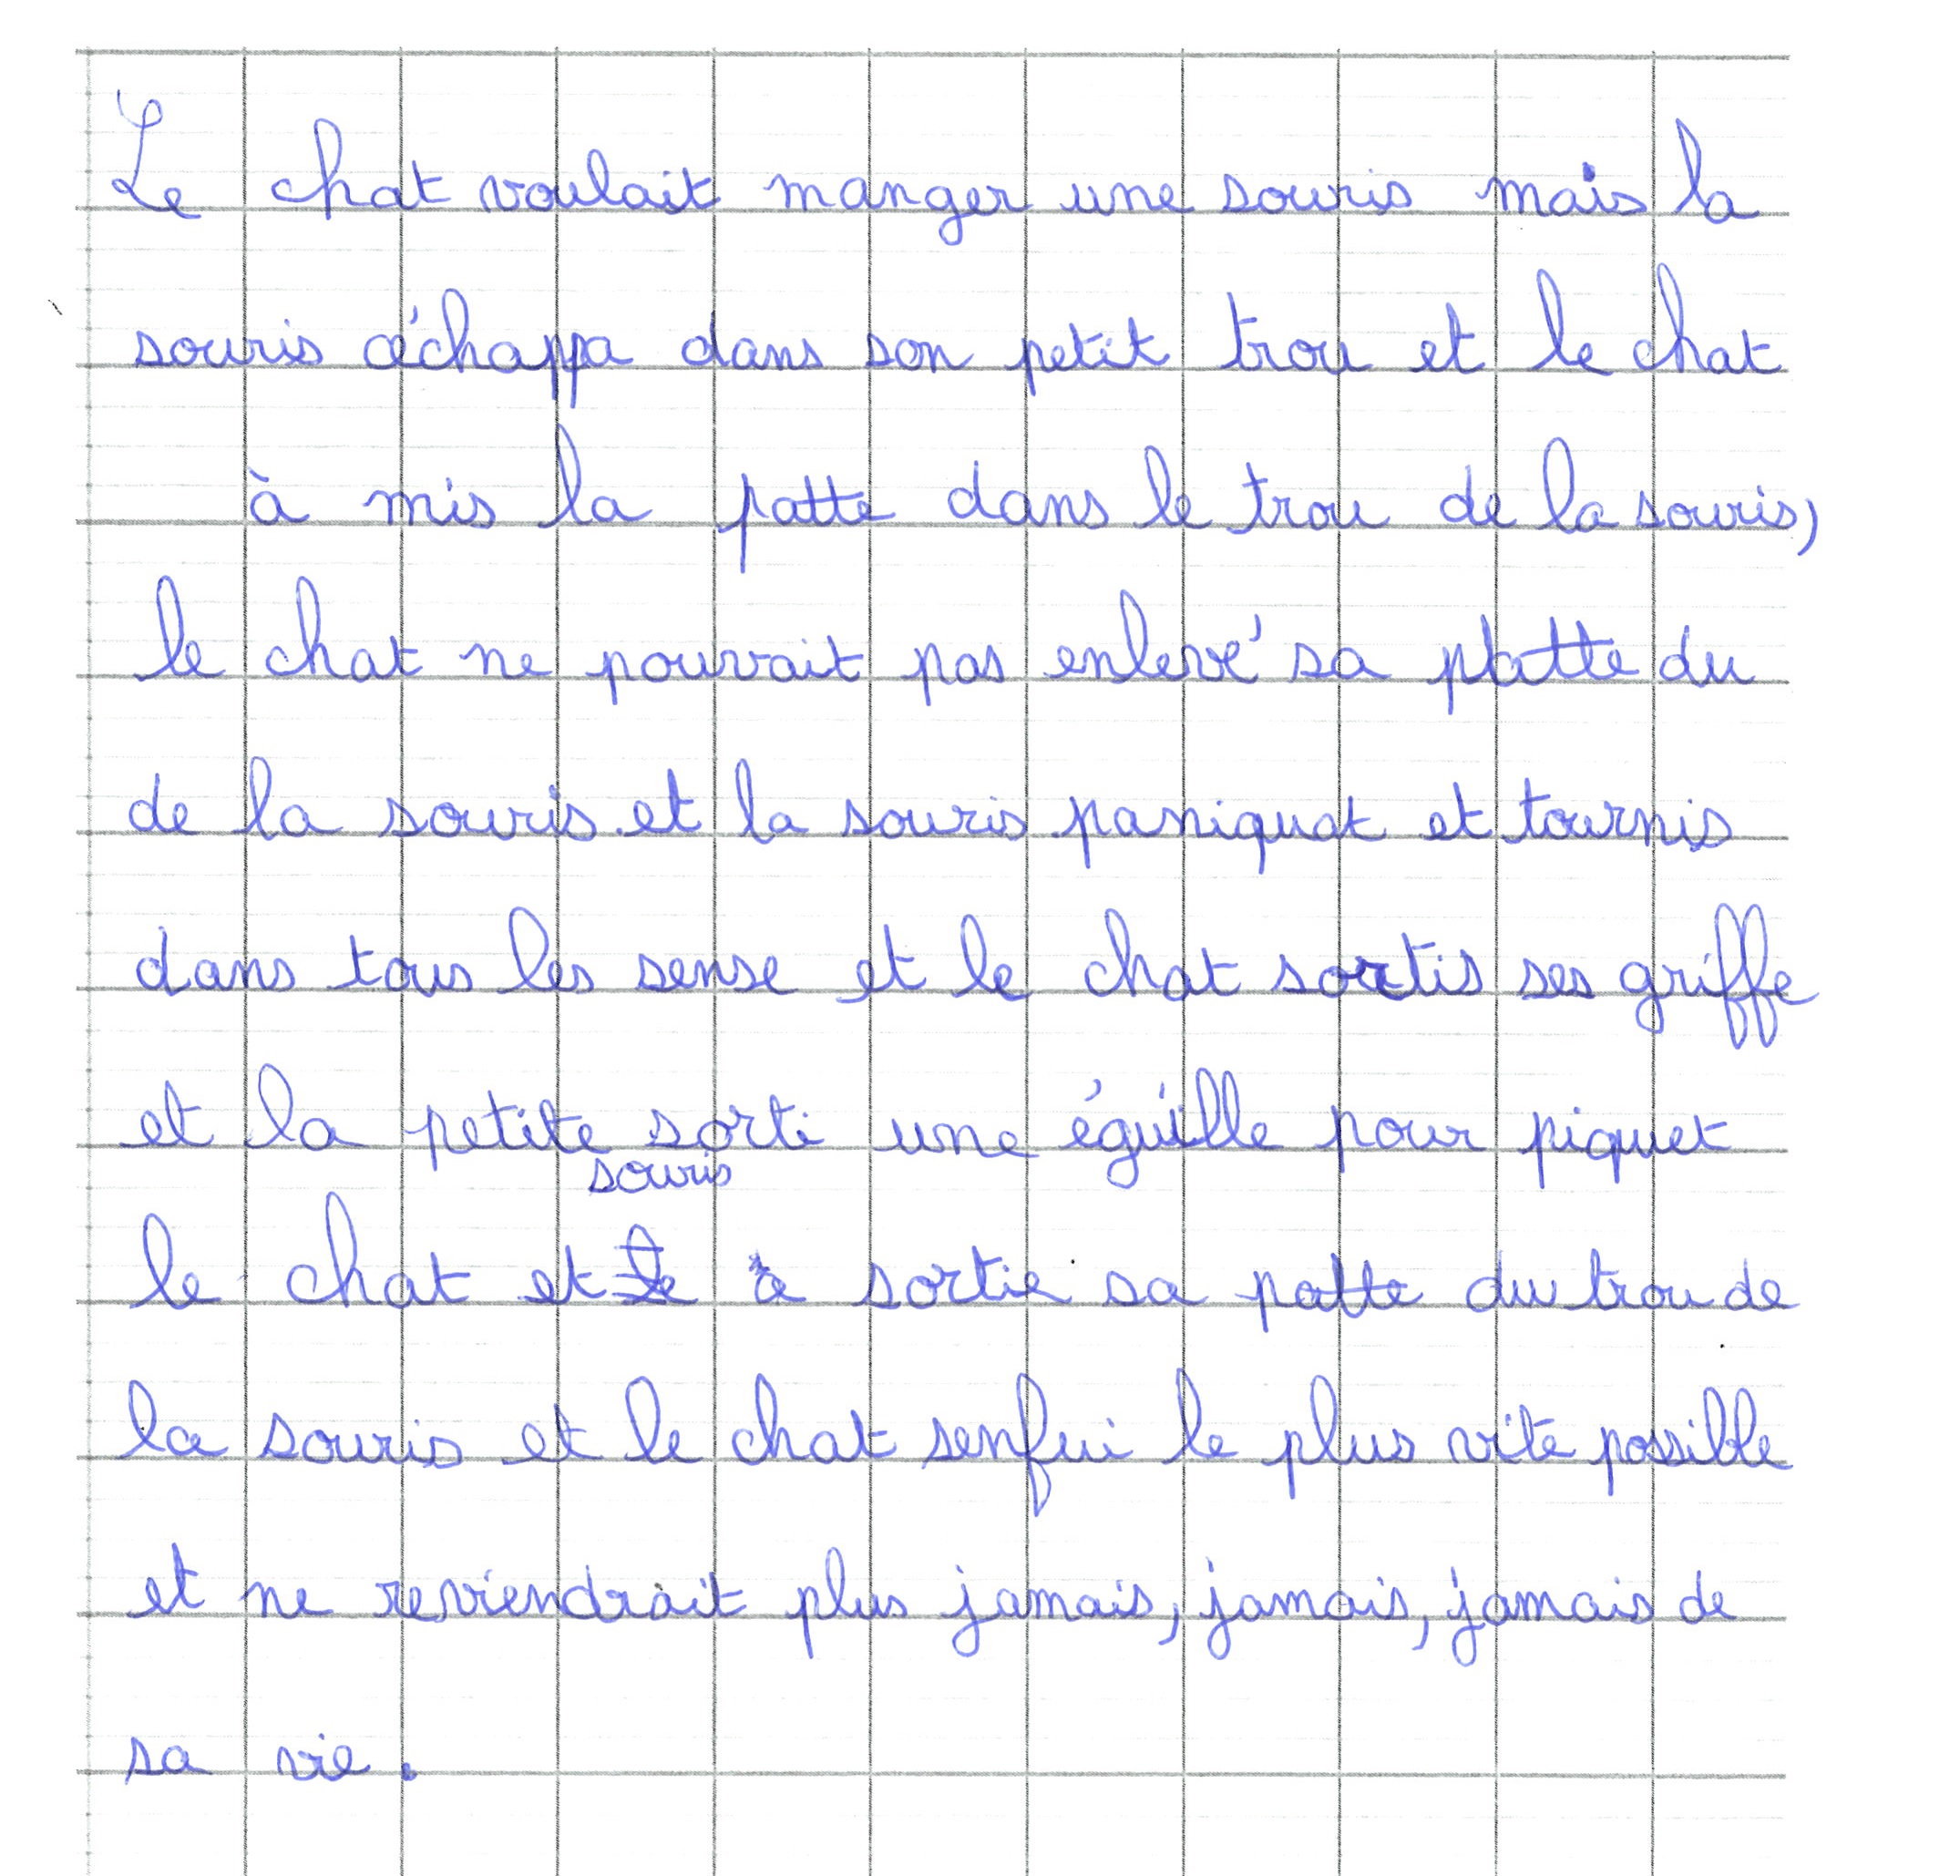 Le chat voulait manger une souris mais la
souris échappa dans son petit trou et le chat
à mis la patte dans le trou de la souris,
le chat ne pouvait pas enlevé sa platte du
de la souris et la souris paniquat et tournis
dans tous les sense et le chat sortis ses griffe
et la petite sorti une éguille pour piquet
souris
le chat et le à sortie sa patte du trou de
la souris et le chat senfui le plus vite possible
et ne reviendrait plus jamais, jamais, jamais de
sa vie.